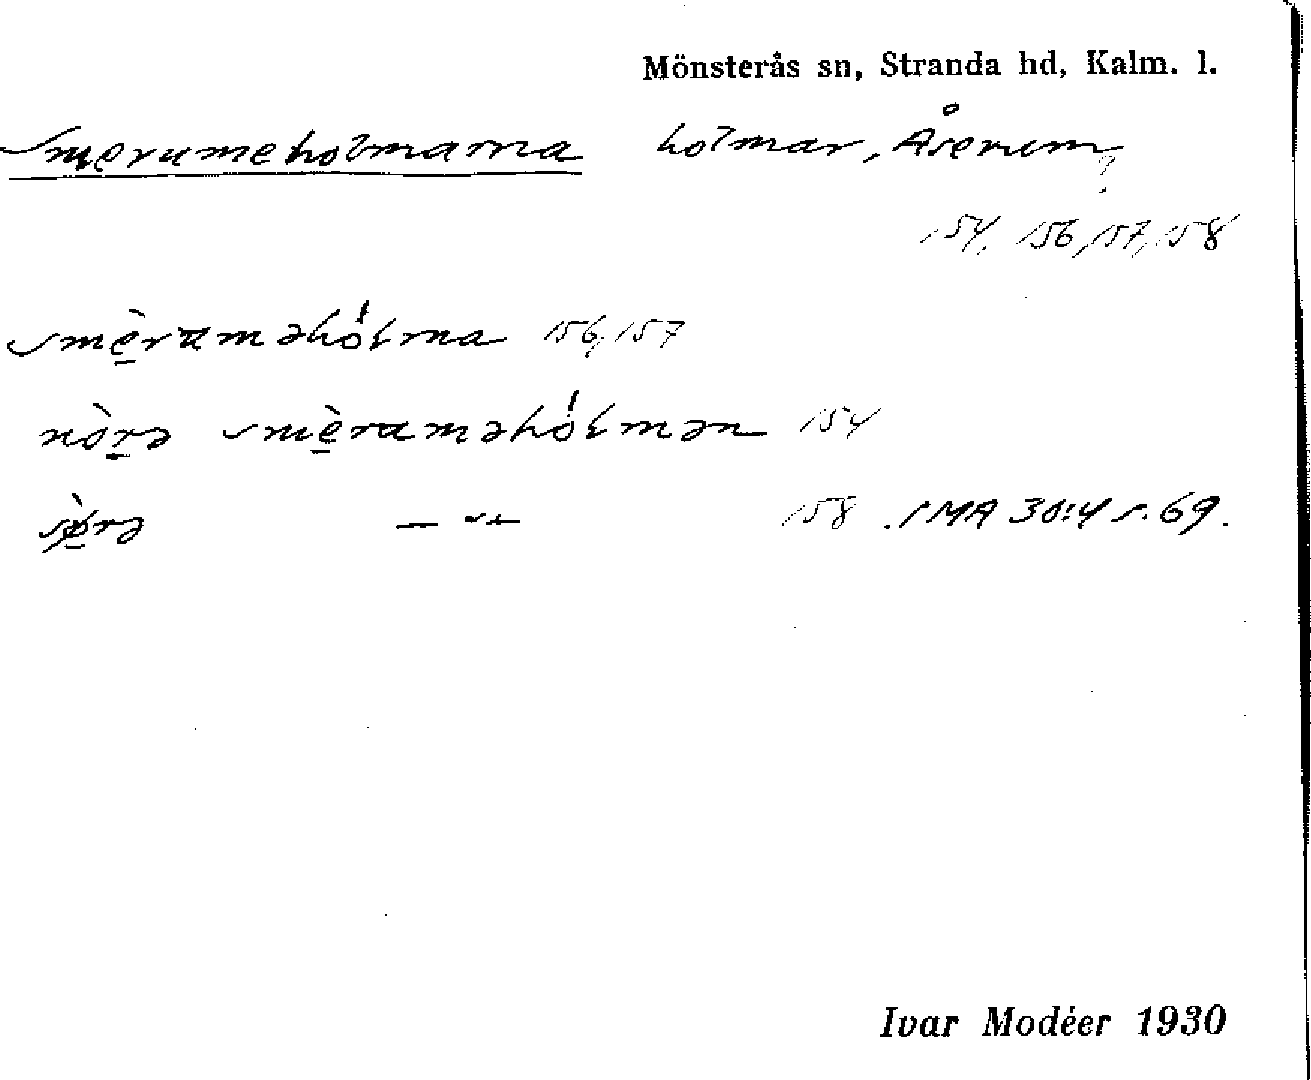 Mönsterås sn, Stranda hd, Kalm. l.
Smerumeholmarna holmar, Åsenum?
154, 156, 157, 158
smèraməhólma 156, 157
nòrə smèraməhólmən 154
sørə — ʺ — 158 . SMA 30:4 s. 69.
Ivar Modéer 1930